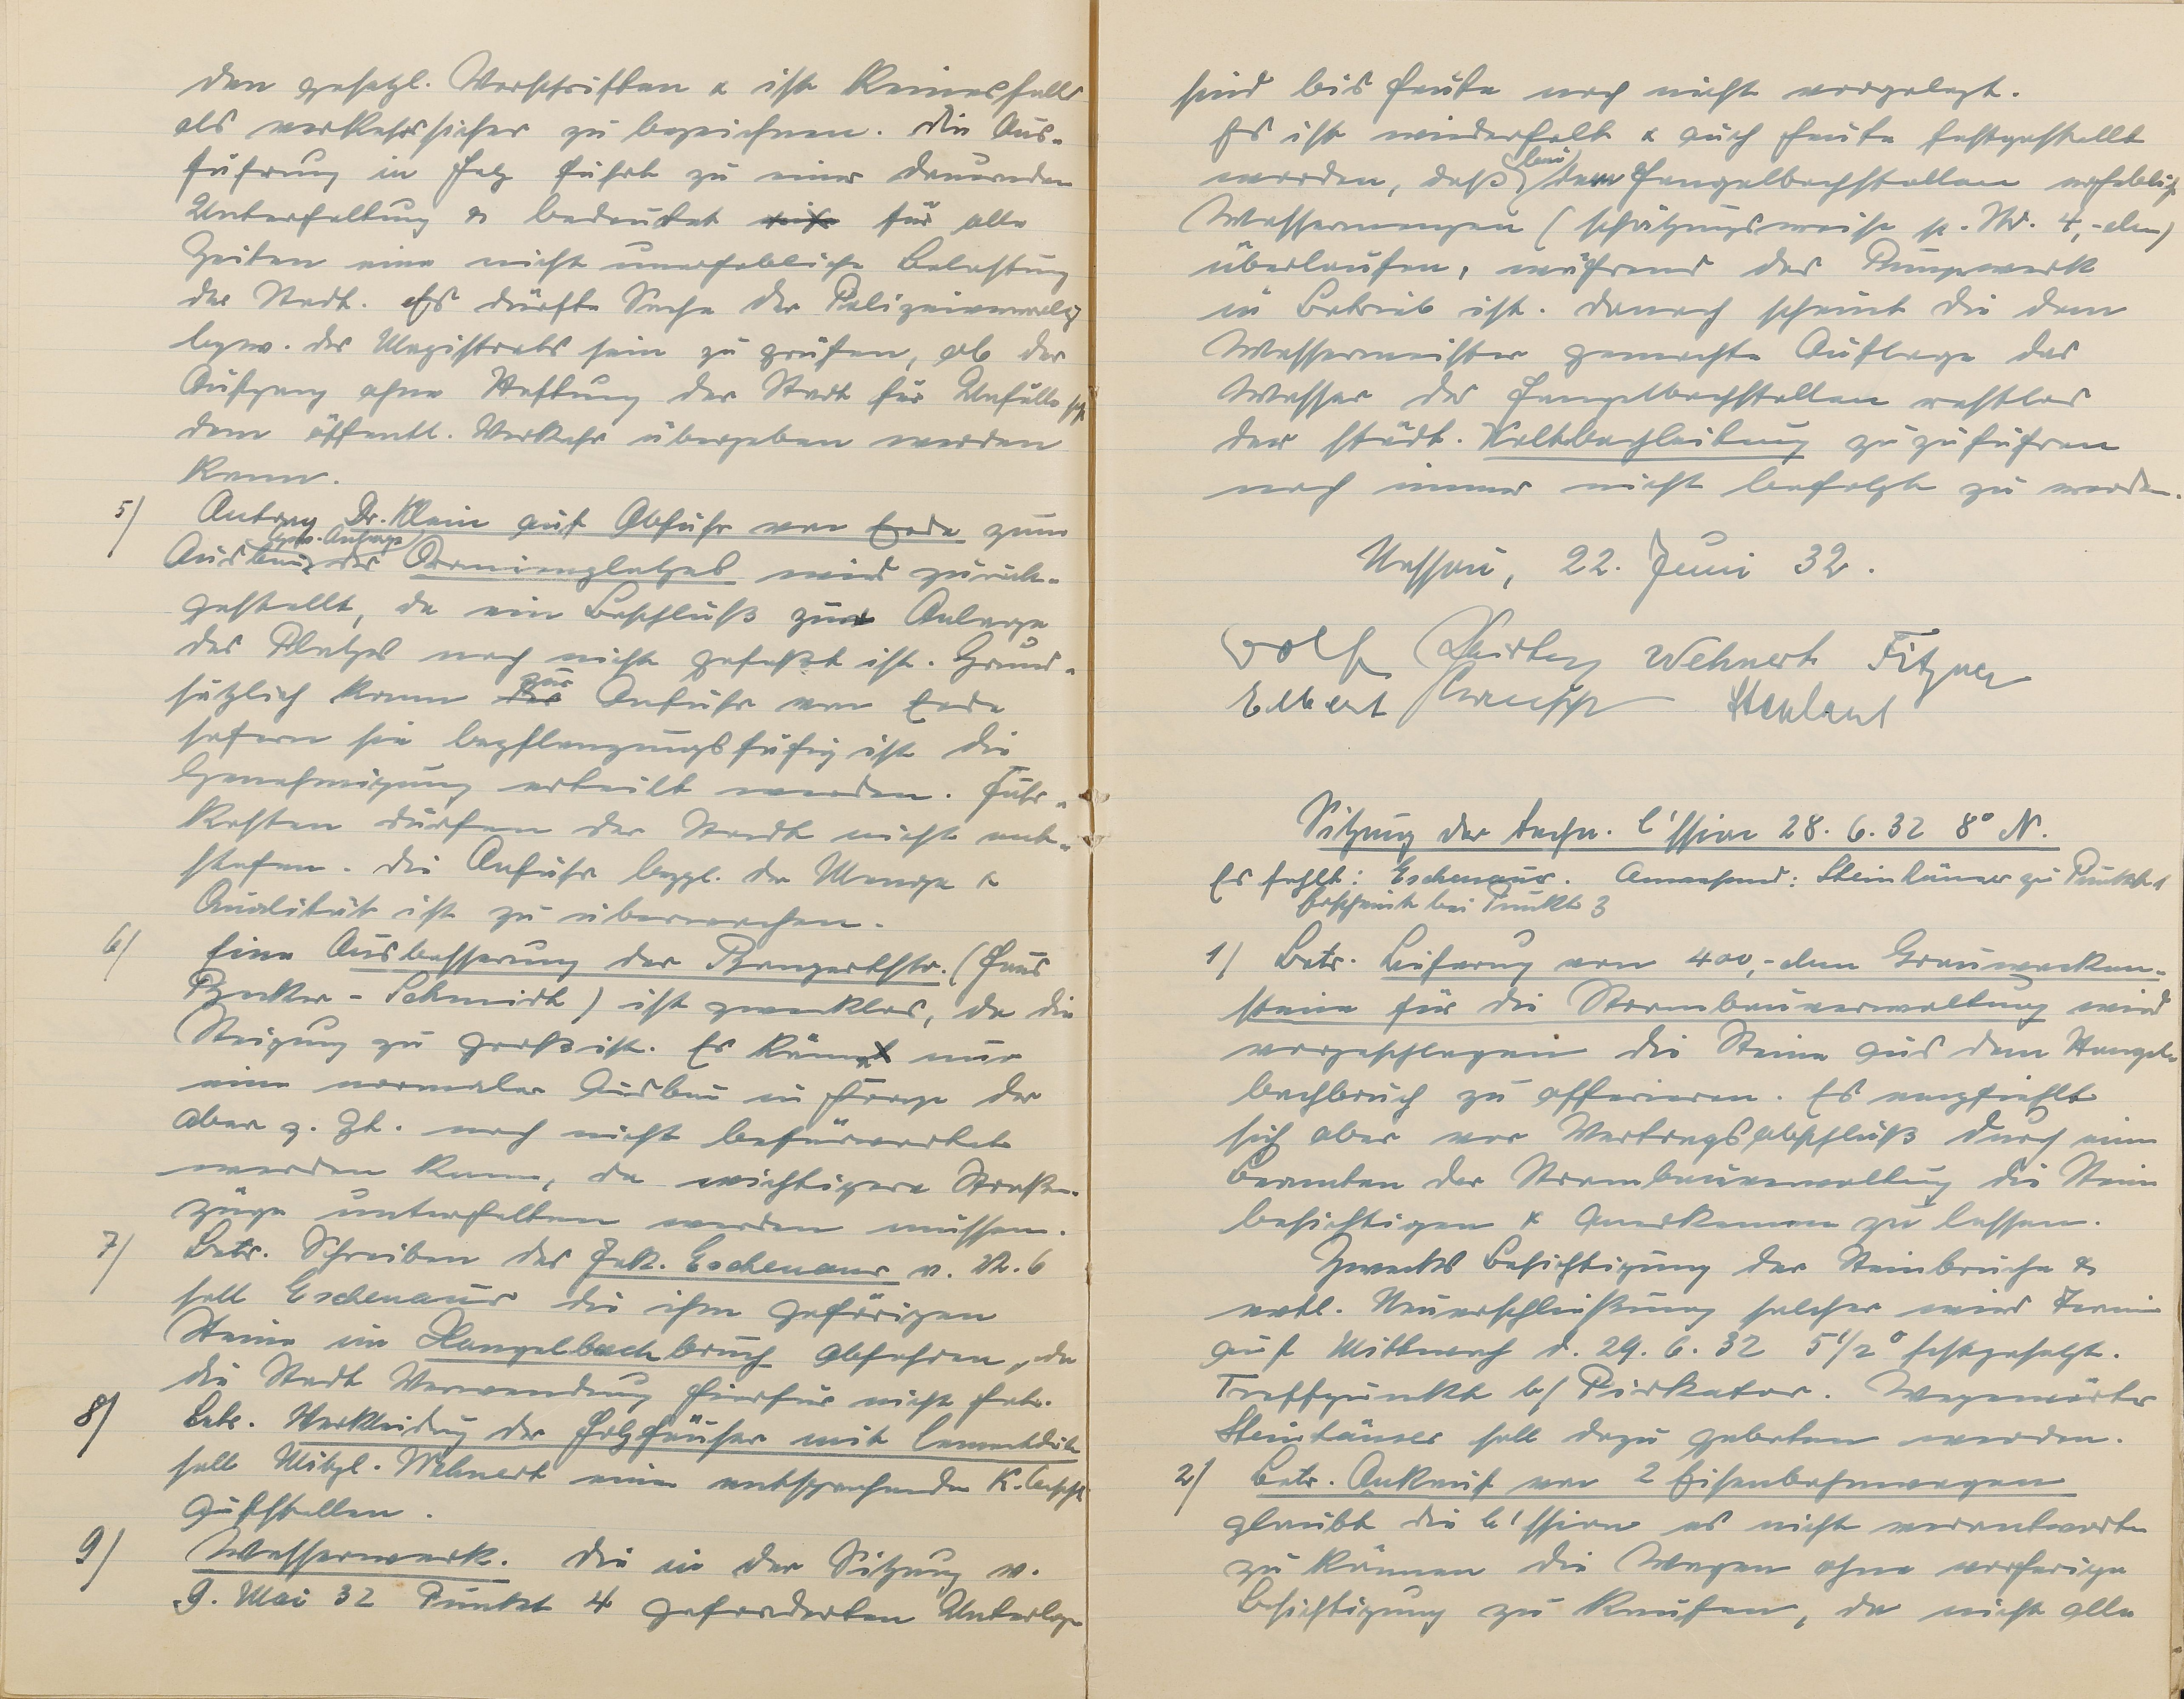 den gesetzl. Vorschriften & ist keinesfalls
als verkehrssicher zu bezeichnen. Die Aus-
führung in Holz führt zu einer dauernden
Unterhaltung & bedeutet für alle
Zeiten eine nicht unerhebliche Belastung
der Stadt. Es dürfte Sache der Polizeiverwaltg
bezw. des Magistrats sein zu prüfen, ob der
Aufgang ohne Haftung der Stadt für Unfälle
dem öffentl. Verkehr übergeben werden
kann.
5/ Antrag Dr. Klein auf Abfuhr von Erde zum
bezw. Anfuhr
Ausbau des Oranienplatzes wird zurück-
gestellt, da ein Beschluß zur Anlage
des Platzes noch nicht gefaßt ist. Grund-
sätzlich kann zur Anfuhr von Erde
sofern sie bepflanzungsfähig ist die
Genehmigung erteilt werden. Fuhr-
kosten dürfen der Stadt nicht ent-
stehen. Die Anfuhr bezgl. der Menge &
Qualität ist zu überwachen.
6/ Eine Ausbesserung der Bongertstr. (Haus
- Schmidt) ist zwecklos, da die
Steigung zu groß ist. Es käme nur
ein normaler Ausbau in Frage der
aber z. Zt. noch nicht befürwortet
werden kann, da wichtigere Straßen-
züge unterhalten werden müssen.
7/ Betr. Schreiben des Jak. Eschenauer v. 6
soll Eschenauer die ihm gehörigen
Steine im Hangelbachbruch abfahren, da
die Stadt Verwendung hierfür nicht hat.
8/ Betr. Verkleidung der Holzhäuser mit
soll Mitgl. Wehnert eine entsprechende K.
aufstellen.
9/ Wasserwerk. Die in der Sitzung v.
9. Mai 32 Punkt 4 geforderten Unterlagen
sind bis heute noch nicht vorgelegt.
Es ist wiederholt & auch heute festgestellt
worden, daß bei den Hangelbachstollen erheblich
Wassermengen (schätzungsweise p. Std. 4,- cbm)
überlaufen, während das Pumpwerk
in Betrieb ist. Danach scheint die dem
Wassermeister gemachte Auflage das
Wasser der Hangelbachstollen restlos
der städt. Kaltbachleitung zuzuführen
noch immer nicht befolgt zu werden.
Nassau, 22. Juni 32.
Wolf Wehnert Fitzner
Elbert
Sitzung der techn. C'ssion 28. 6. 32 8° N.
Es fehlt: Eschenauer. Anwesend: Steinhäuser zu Punkt 1
Erscheint bei Punkt 3
1/ Betr. Lieferung von 400,- cbm Grauwacken-
steine für die Strombauverwaltung wird
vorgeschlagen die Steine aus dem Hangel-
bachbruch zu offerieren. Es empfiehlt
sich aber vor Vertragsabschluß durch einen
Beamten der Strombauverwaltung die Steine
besichtigen & anerkennen zu lassen.
Zwecks Besichtigung der Steinbrüche &
evtl. Neuerschließung solcher wird Termin
auf Mittwoch d. 29. 6. 32 5 1/2° festgesetzt.
Treffpunkt b/ Piskator. Wegewärter
Steinhäuser soll dazu gebeten werden.
2/ Betr. Ankauf von 2 Eisenbahnwagen
glaubt die C'ssion es nicht verantworten
zu können die Wagen ohne vorherige
Besichtigung zu kaufen, da nicht alle